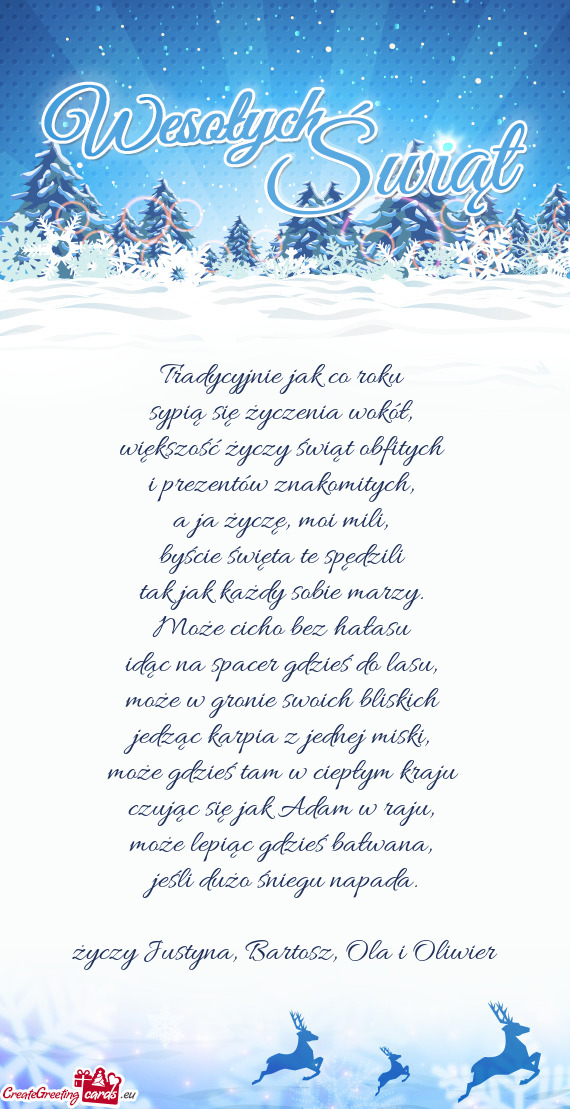 Wesołych
Świąt
Tradycyjnie jak co roku
sypią się życzenia wokół,
większość życzy świąt obfitych
i prezentów znakomitych,
a ja życzę, moi mili,
byście święta te spędzili
tak jak każdy sobie marzy.
Może cicho bez hałasu
idąc na spacer gdzieś do lasu,
może w gronie swoich bliskich
jedząc karpia z jednej miski,
może gdzieś tam w ciepłym kraju
czując się jak Adam w raju,
może lepiąc gdzieś bałwana,
jeśli dużo śniegu napada.
życzy Justyna, Bartosz, Ola i Oliwier
CreateGreeting cards .eu